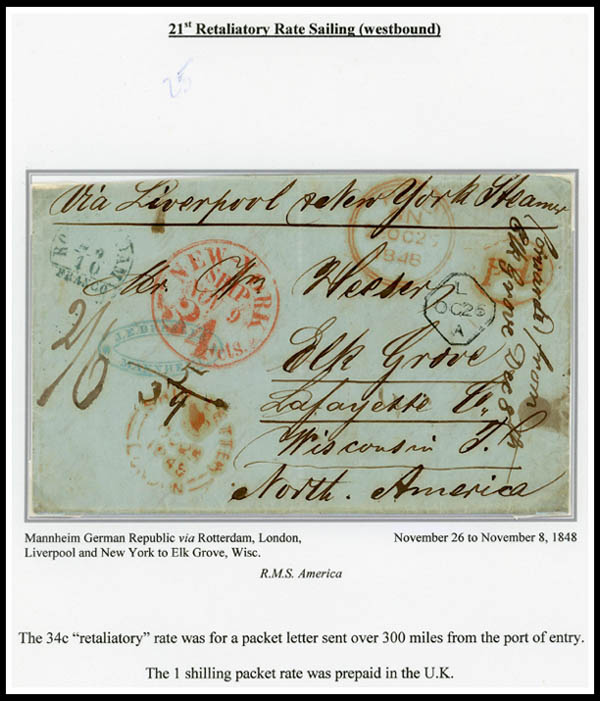 21st Retaliatory Rate Sailing (westbound)
25
Via Liverpool & New York Steamer
FRANCO
NEW YORK
SHIP
9
34 cts.
OC2
1848
L
OC 26
A
Mr. Wm
Elk Grove
Lafayette Co,
Wisconsin T.
North. America
2/6
MANNHEIM
LONDON
Elk Grove Dec 8th
Mannheim German Republic via Rotterdam, London,
Liverpool and New York to Elk Grove, Wisc.
November 26 to November 8, 1848
R.M.S. America
The 34c “retaliatory” rate was for a packet letter sent over 300 miles from the port of entry.
The 1 shilling packet rate was prepaid in the U.K.